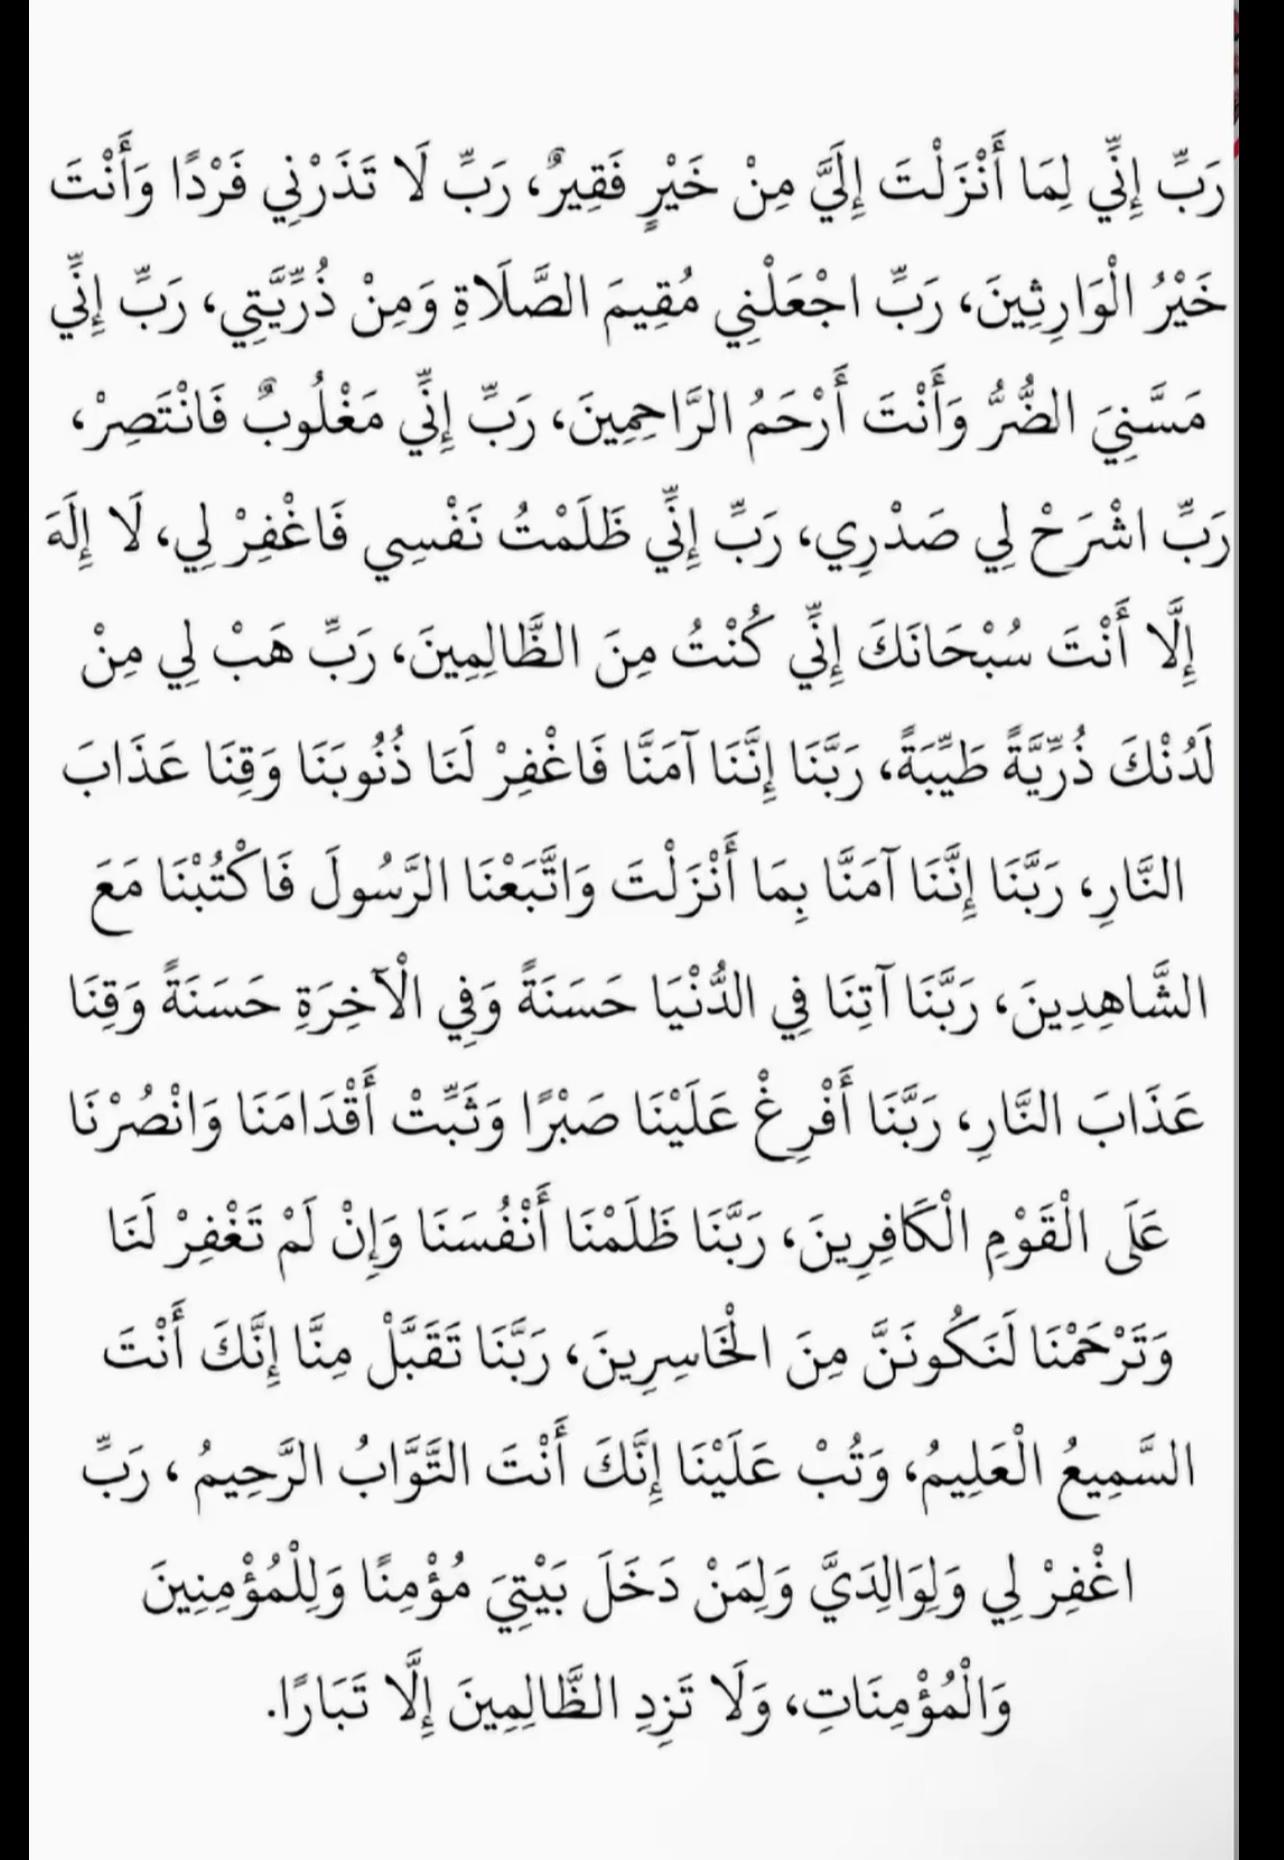 رَبِّ إِنِّي لِمَا أَنْزَلْتَ إِلَيَّ مِنْ خَيْرٍ فَقِيرٌ، رَبِّ لَا تَذَرْنِي فَرْدًا وَأَنْتَ
خَيْرُ الْوَارِثِينَ، رَبِّ اجْعَلْنِي مُقِيمَ الصَّلَاةِ وَمِنْ ذُرِّيَّتِي، رَبِّ إِنِّي
مَسَّنِيَ الضُّرُّ وَأَنْتَ أَرْحَمُ الرَّاحِمِينَ، رَبِّ إِنِّي مَغْلُوبٌ فَانْتَصِرْ،
رَبِّ اشْرَحْ لِي صَدْرِي، رَبِّ إِنِّي ظَلَمْتُ نَفْسِي فَاغْفِرْ لِي، لَا إِلَهَ
إِلَّا أَنْتَ سُبْحَانَكَ إِنِّي كُنْتُ مِنَ الظَّالِمِينَ، رَبِّ هَبْ لِي مِنْ
لَدُنْكَ ذُرِّيَّةً طَيِّبَةً، رَبَّنَا إِنَّنَا آمَنَّا فَاغْفِرْ لَنَا ذُنُوبَنَا وَقِنَا عَذَابَ
النَّارِ، رَبَّنَا إِنَّنَا آمَنَّا بِمَا أَنْزَلْتَ وَاتَّبَعْنَا الرَّسُولَ فَاكْتُبْنَا مَعَ
الشَّاهِدِينَ، رَبَّنَا آتِنَا فِي الدُّنْيَا حَسَنَةً وَفِي الْآخِرَةِ حَسَنَةً وَقِنَا
عَذَابَ النَّارِ، رَبَّنَا أَفْرِغْ عَلَيْنَا صَبْرًا وَثَبِّتْ أَقْدَامَنَا وَانْصُرْنَا
عَلَى الْقَوْمِ الْكَافِرِينَ، رَبَّنَا ظَلَمْنَا أَنْفُسَنَا وَإِنْ لَمْ تَغْفِرْ لَنَا
وَتَرْحَمْنَا لَنَكُونَنَّ مِنَ الْخَاسِرِينَ، رَبَّنَا تَقَبَّلْ مِنَّا إِنَّكَ أَنْتَ
السَّمِيعُ الْعَلِيمُ، وَتُبْ عَلَيْنَا إِنَّكَ أَنْتَ التَّوَّابُ الرَّحِيمُ ، رَبِّ
اغْفِرْ لِي وَلِوَالِدَيَّ وَلِمَنْ دَخَلَ بَيْتِيَ مُؤْمِنًا وَلِلْمُؤْمِنِينَ
وَالْمُؤْمِنَاتِ، وَلَا تَزِدِ الظَّالِمِينَ إِلَّا تَبَارًا.